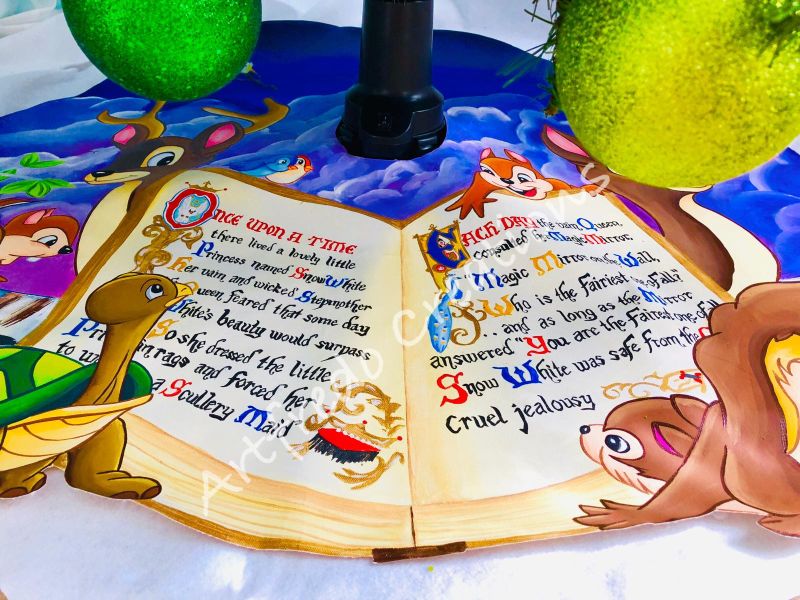 Once upon a time
there lived a lovely little
Princess named Snow White
her vain and wicked Stepmother
Queen feared that some day
White's beauty would surpass
So she dressed the little
Prin in rags and forced her
to w a Scullery Maid
Each day the vain Queen
consulted the Magic Mirror..
Magic Mirror on the Wall,
Who is the Fairest one of all?"
... and as long as the Mirror
answered "You are the Fairest one of
Snow White was safe from the
Cruel jealousy
Artfuego Creations